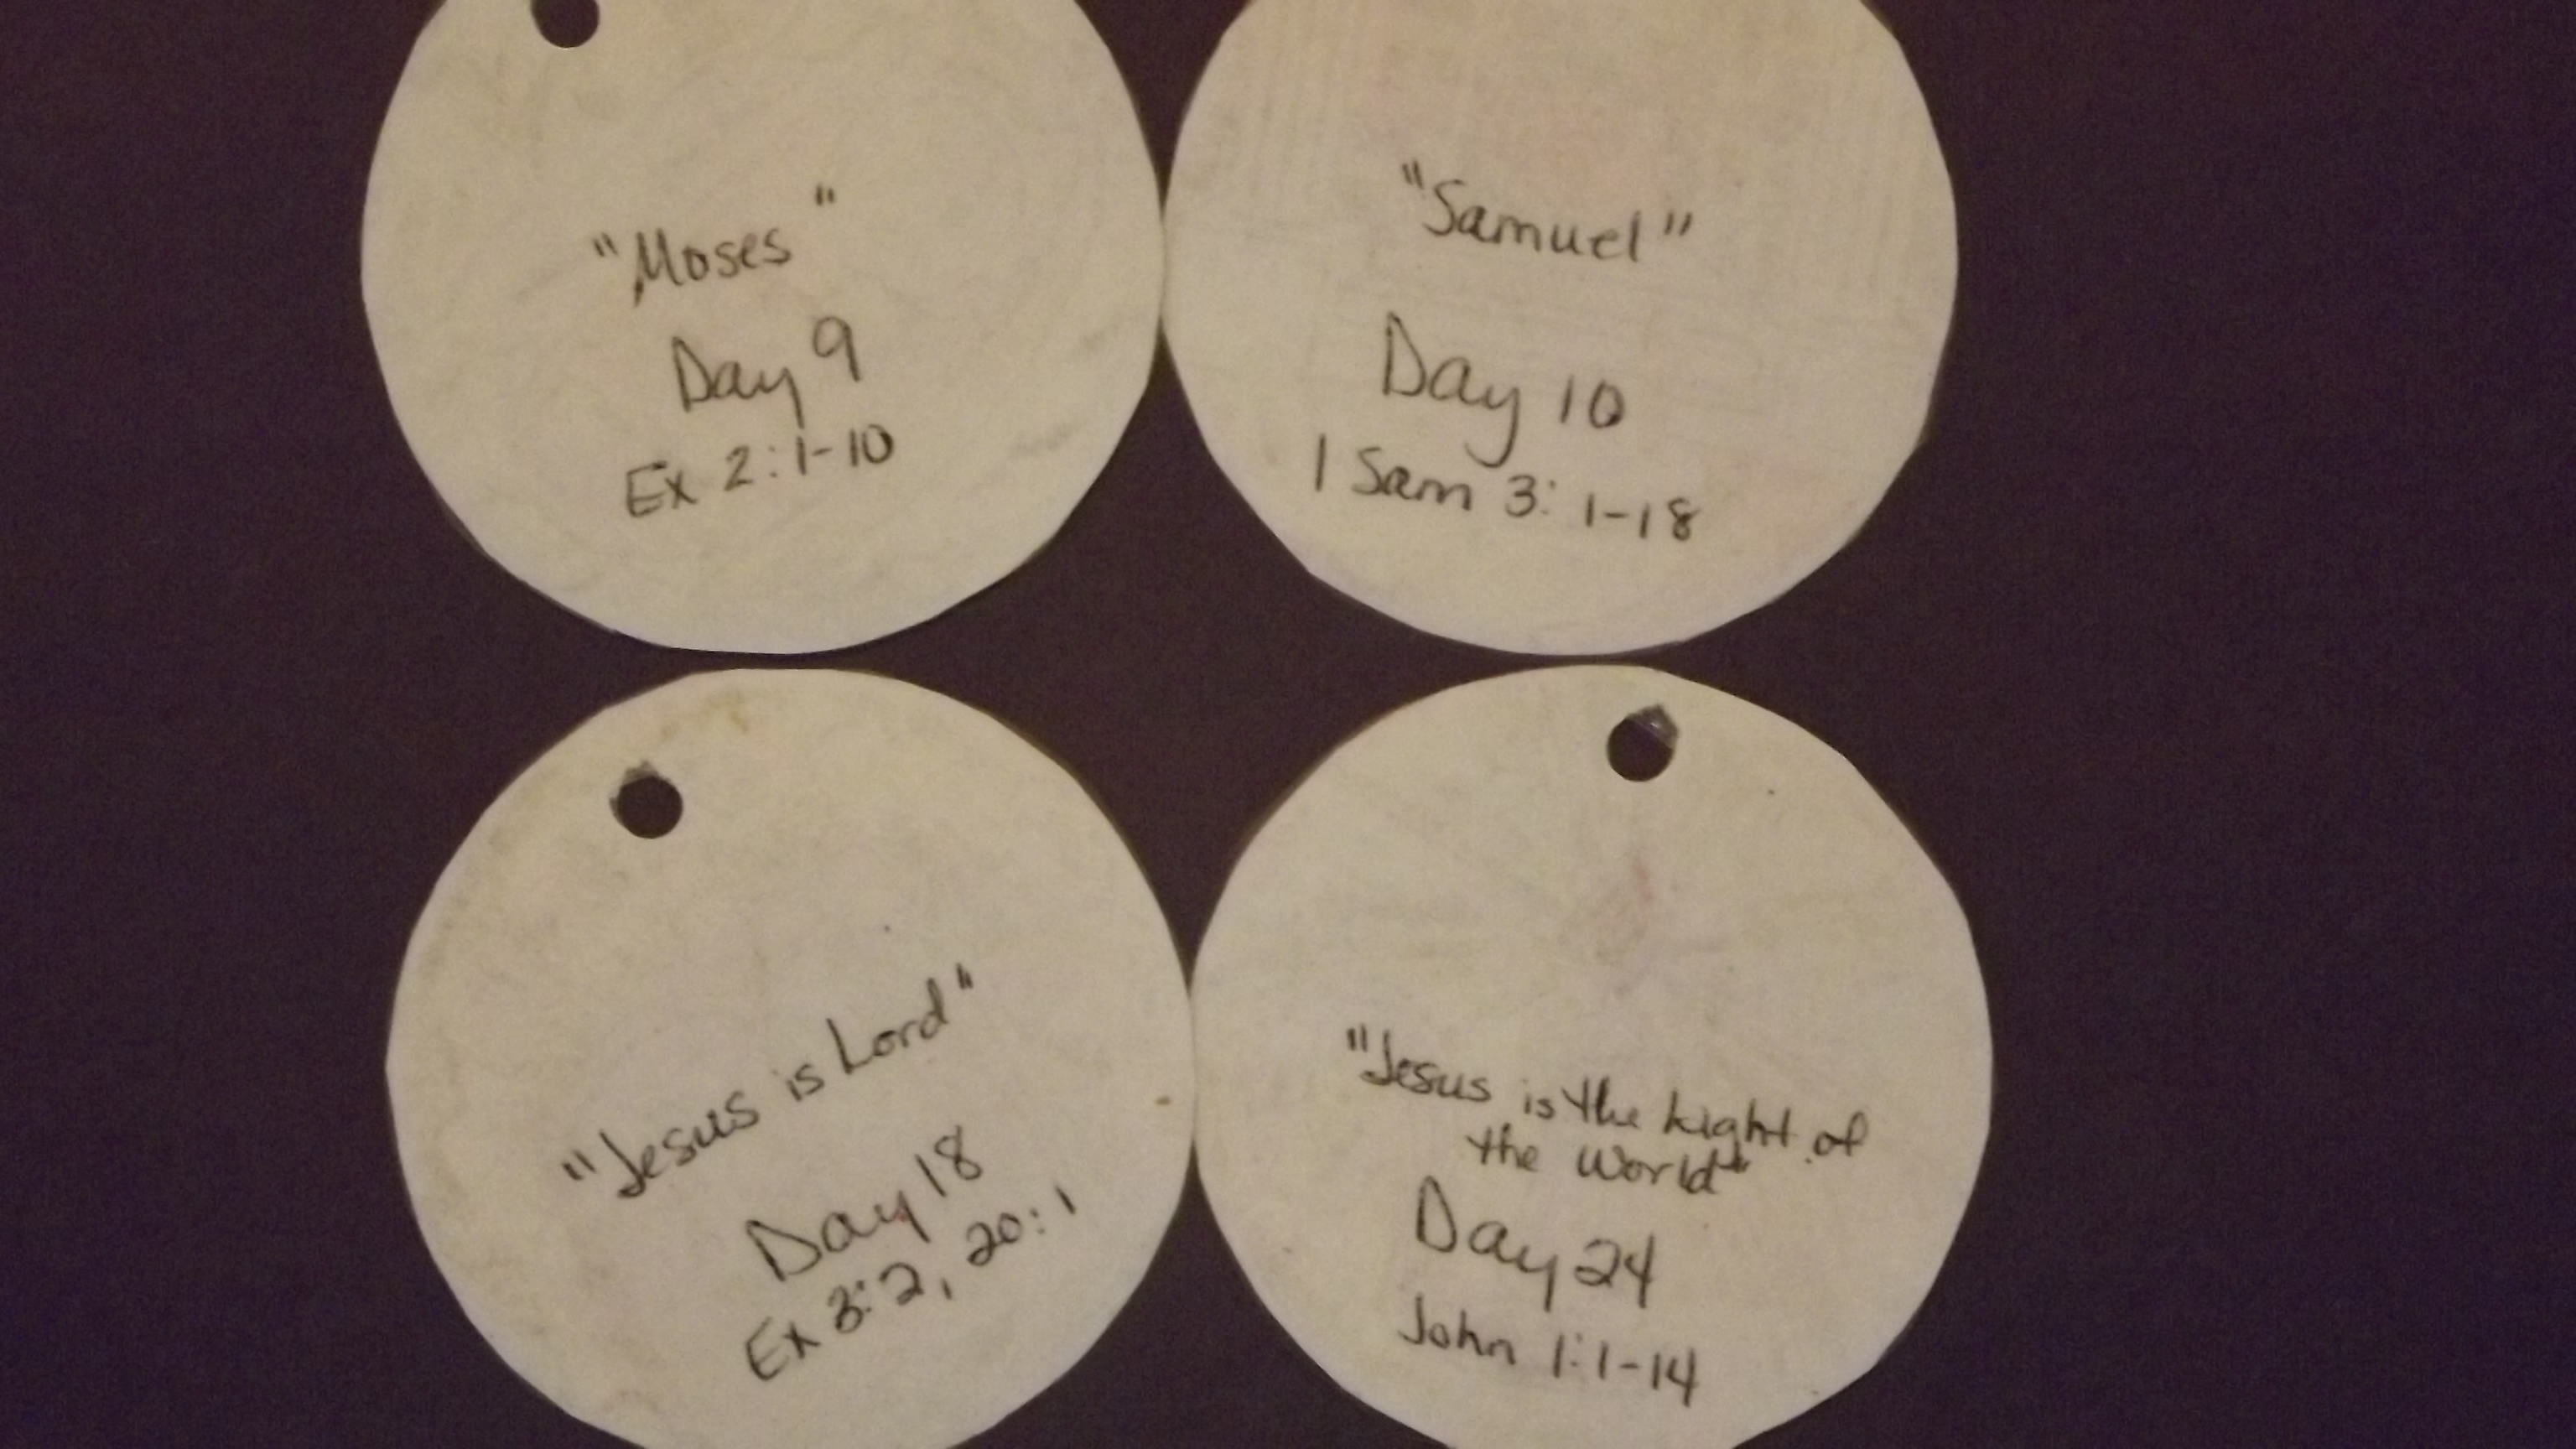 "Moses"
Day 9
Ex 2:1-10
"Samuel"
Day 10
1 Sam 3:1-18
"Jesus is Lord"
Day 18
Ex 3:2, 20:1
"Jesus is the Light of
the World"
Day 24
John 1:1-14